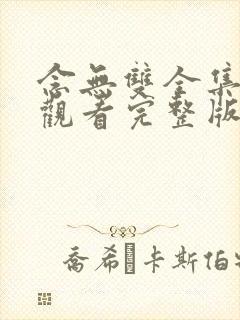 念無雙全集
觀看完整版
喬希·卡斯伯